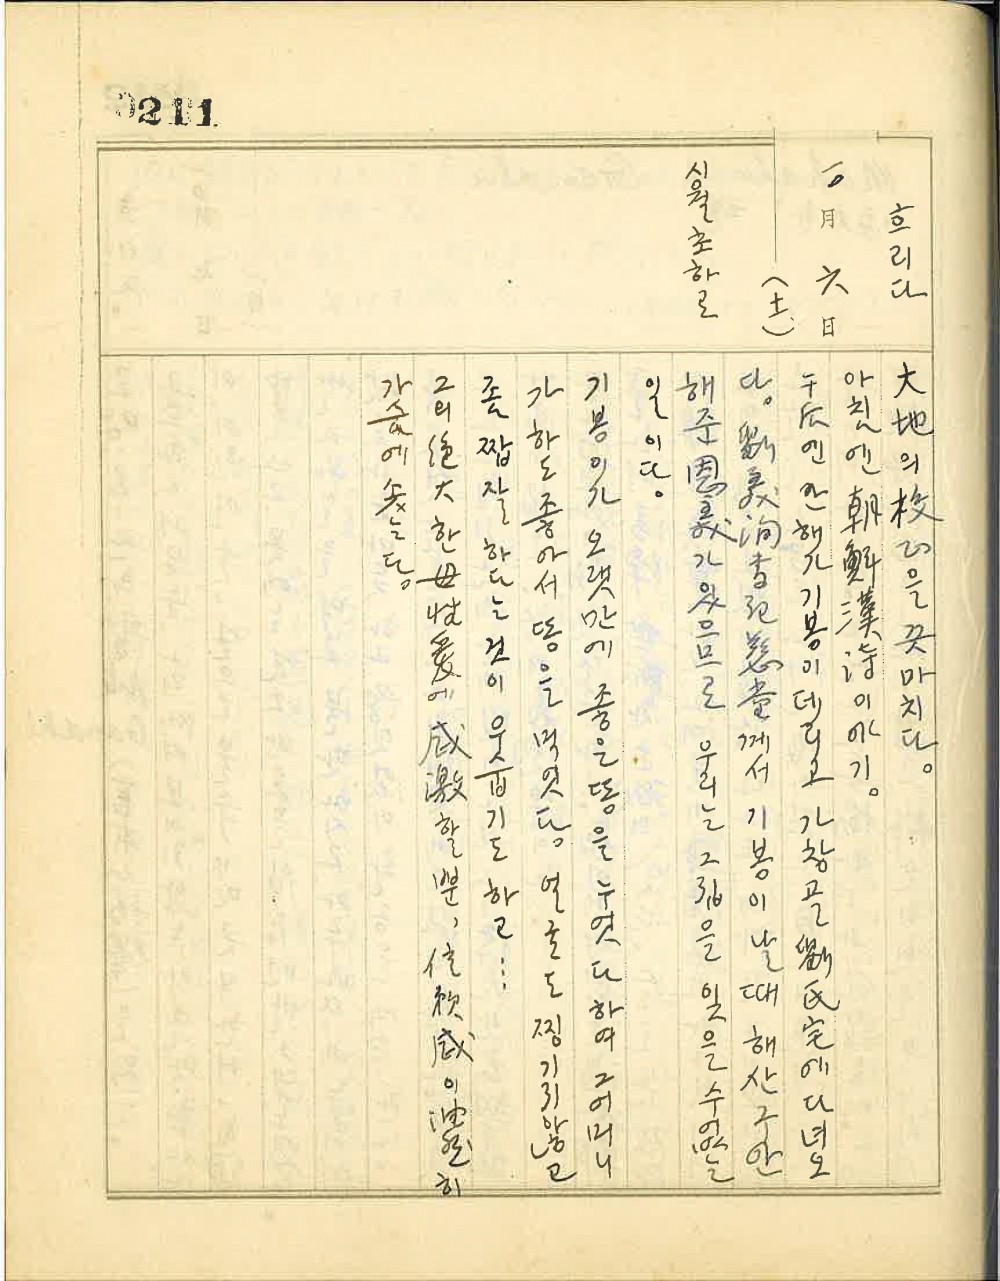 0211
흐리다
一〇月 六日
(土)
시월 초하로
大地의 校正을 끗마치다。
아침엔 朝鮮漢詩 이야기。
午后엔 안해가 기봉이 데리고 가창골 劉氏宅에 다녀오
다。 劉義洵 慈堂께서 기봉이 날 때 해산구안
해준 恩義가 있으므로 우리는 그 집을 잊을 수 없는
일이다。
기봉이가 오랫만에 좋은 똥을 누엇다 하여 그 어머니
가 하도 좋아서 똥을 먹엇다。 얼골도 찡기리 않고
좀 짭잘하다는 것이 웃읍기도 하고…
그의 絶大한 母性愛에 感激할 뿐, 信賴感이 油然히
가슴에 솟는다。